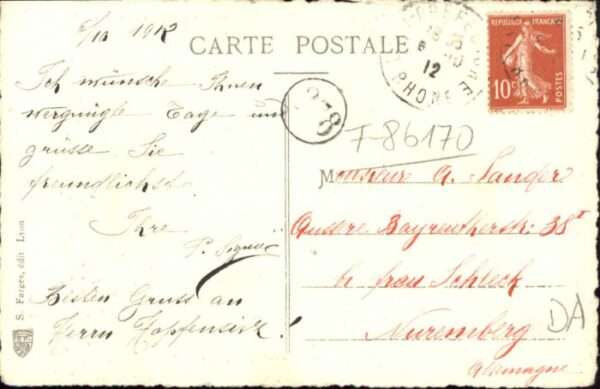 5/10 1912
CARTE POSTALE
Ich wünsche Ihnen
vergnügte Tage und
grüsse Sie
freundlichst
Ihre
Besten Gruss an
Herrn
S. Farges, édit Lyon
378
RHONE
12
REPUBLIQUE FRANÇAISE
10c
POSTES
F-86170
Monsieur A. Sander
Äussere Bayreutherstr. 38 I
bei frau Schleck
Nuremberg
Allemagne
DA